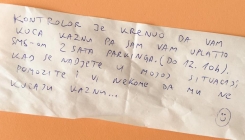 KONTROLOR JE KRENUO DA VAM
KUCA KAZNU PA SAM VAM UPLATIO
SMS-OM 2 SATA PARKINGA. (DO 12.10h).
KAD SE NADJETE U MOJOJ SITUACIJI,
POMOZITE I VI NEKOME DA MU NE
KUCAJU KAZNU...